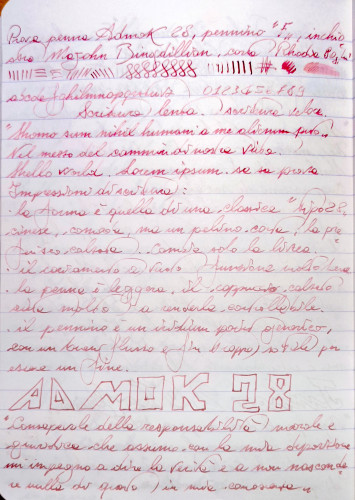 Prova penna Admok 28, pennino "F", inchio
stro Majohn Bingdillian, carta Rhodia 80
abcde fghilmnopqrstuvz 0123456789
Scrittura lenta. Scrittura veloce
"Homo sum nihil humani a me alienum puto."
Nel mezzo del cammin di nostra vita.
Hello world. Lorem ipsum. sa sa prova
Impressioni di scrittura:
. la forma è quella di una classica "tipo 28
comoda, ma un pelino corta, la pre
calzata. Cambia solo la
. il caricamento a vuoto funziona molto bene
. la penna è leggera, il cappuccio calzato
aiuta molto a renderla controllabile.
. il pennino è un iridium point generico,
con un buon flusso e fin troppo sottile per
essere un fine.
ADMOK 28
"Consapevole della responsabilità morale e
giuridica che assumo con la mia deposizione
mi impegno a dire la verità e a non nascondere
nulla di quanto in mia conoscenza."